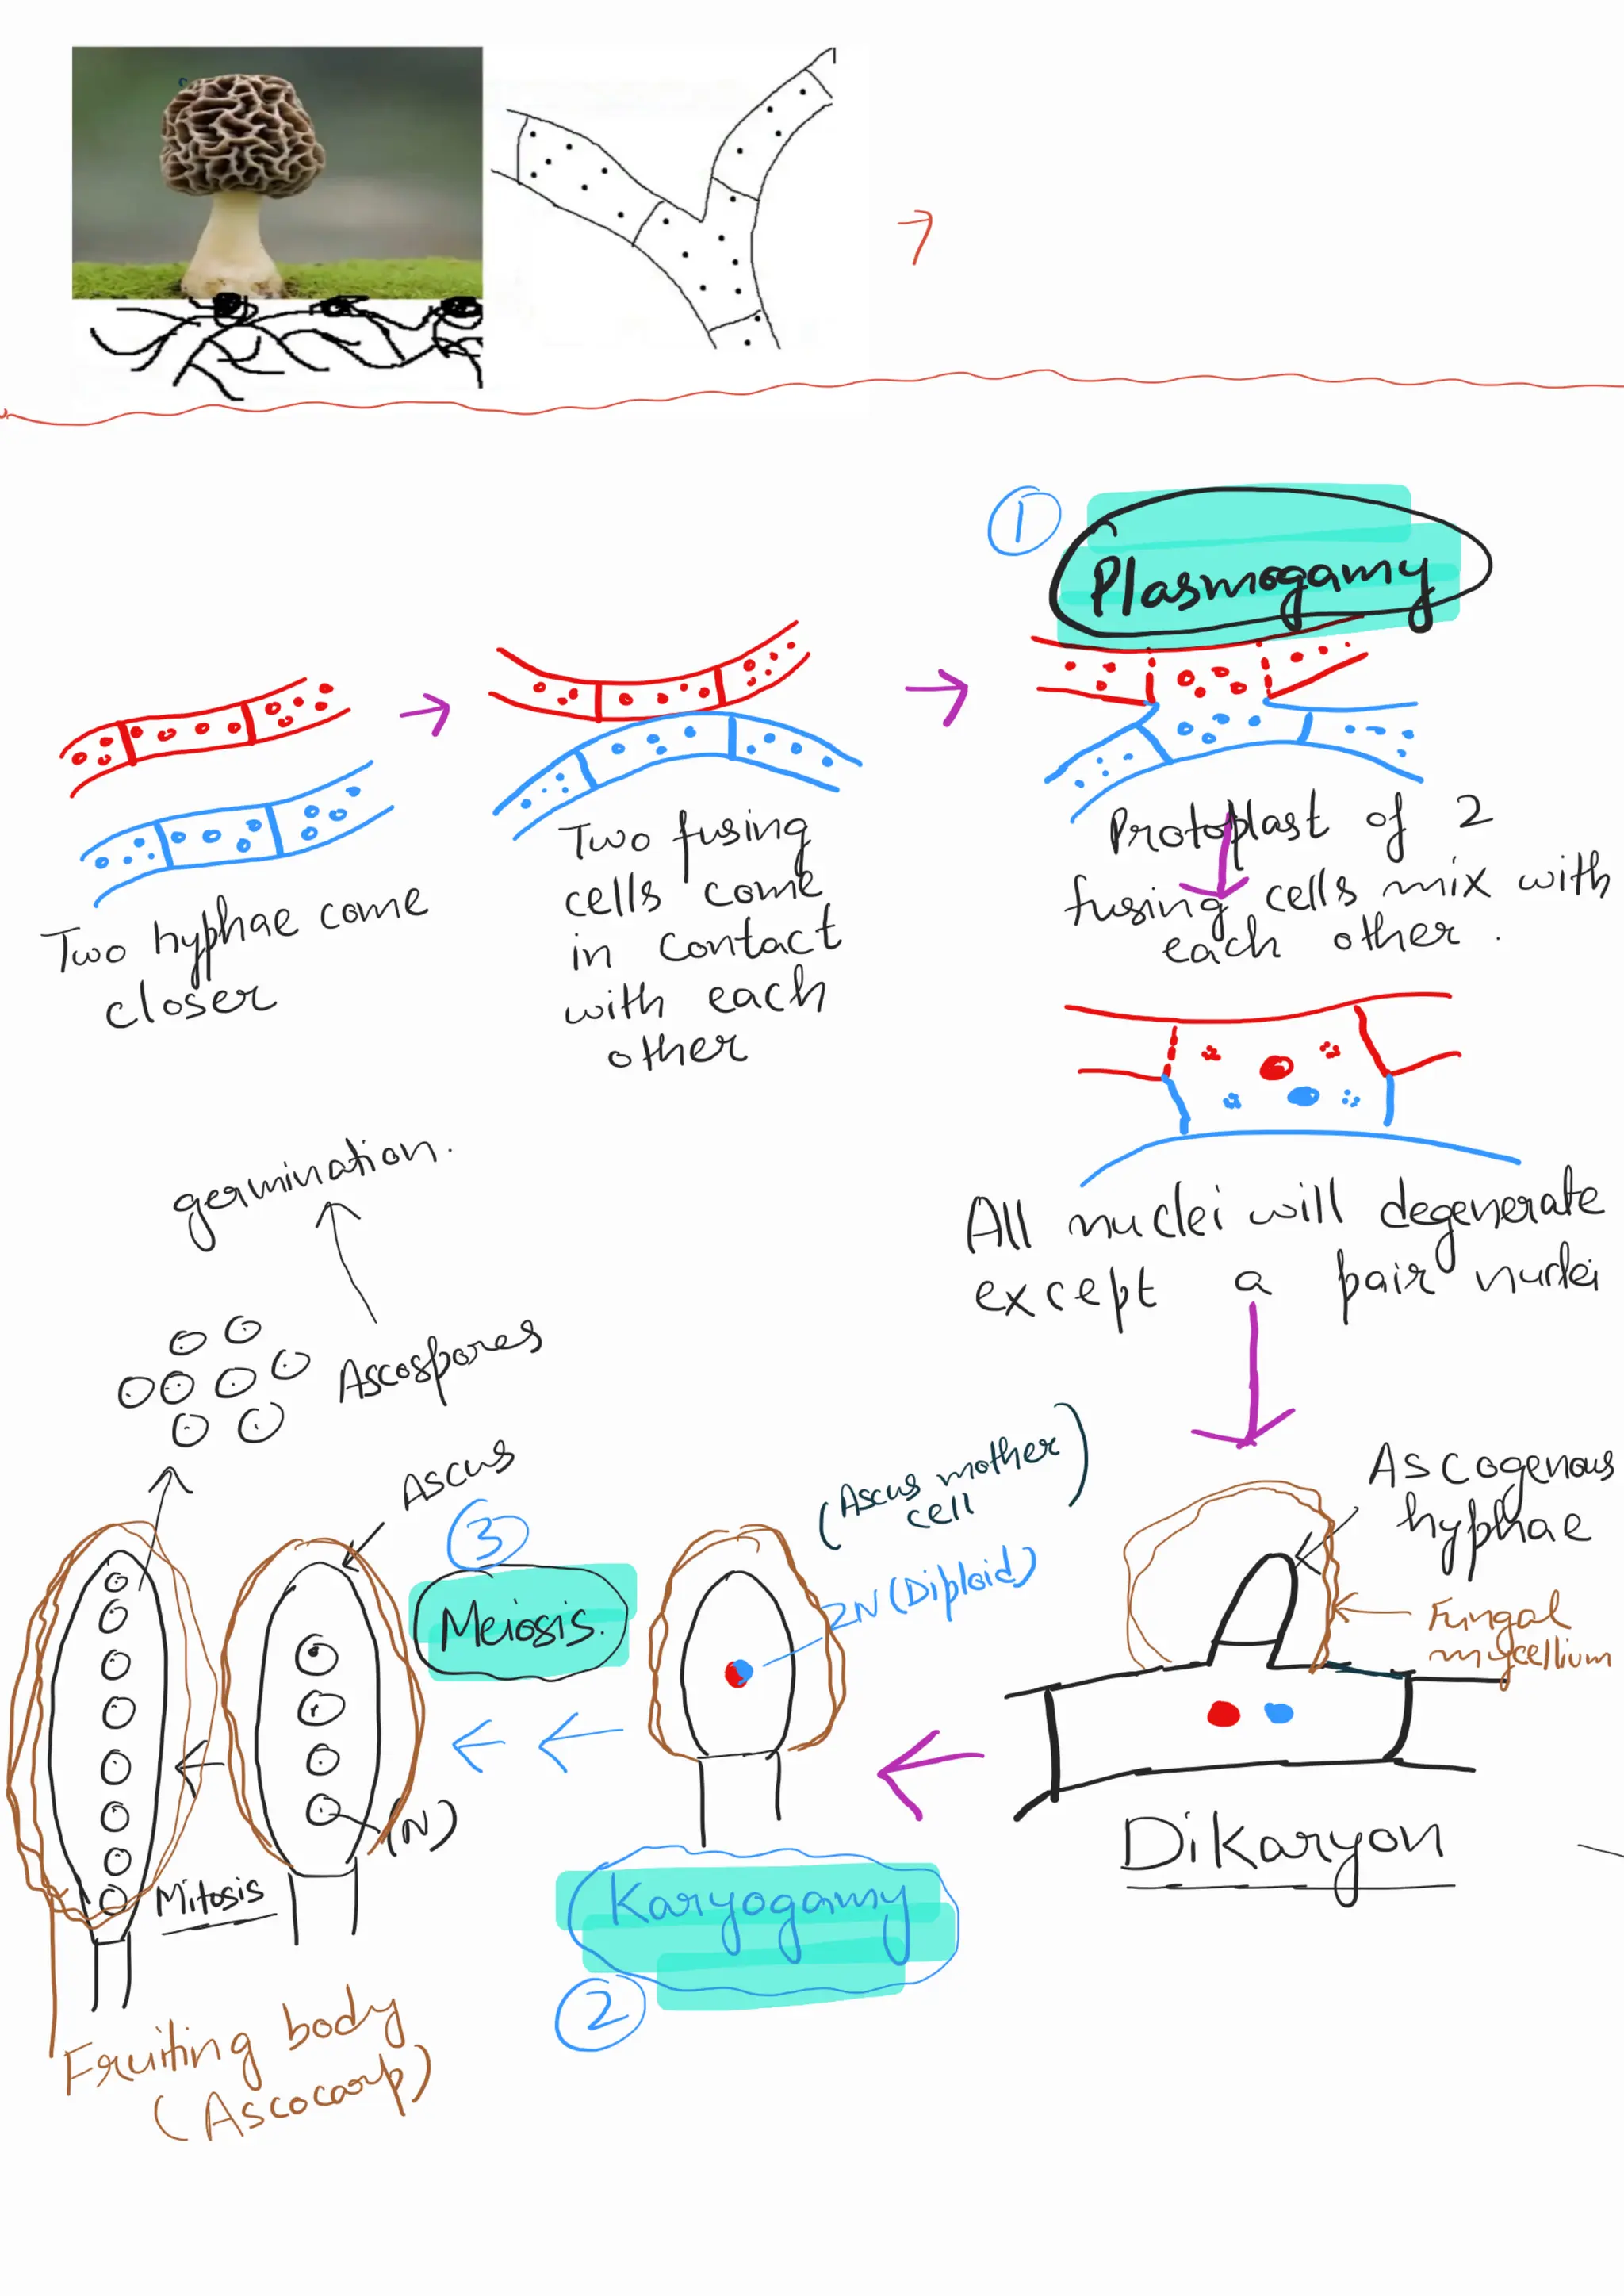 1
Plasmogamy
Two hyphae come
closer
Two fusing
cells come
in contact
with each
other
Protoplast of 2
fusing cells mix with
each other.
All nuclei will degenerate
except a pair nuclei
Ascogenous
hyphae
Fungal
mycellium
Dikaryon
(Ascus mother
cell)
2N (Diploid)
Karyogamy
2
3
Meiosis.
Ascus
(N)
Mitosis
Ascospores
germination.
Fruiting body
(Ascocarp)